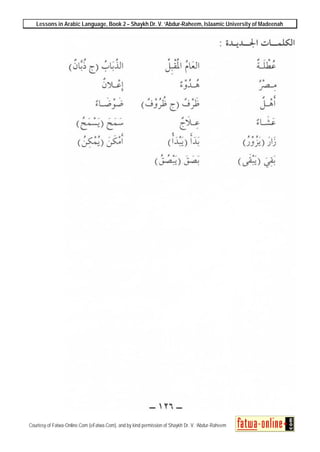 Lessons in Arabic Language, Book 2 – Shaykh Dr. V. 'Abdur-Raheem, Islaamic University of Madeenah
الكلمـــات الجـــديـــدة :
عُطْلَـةٌ العَامُ الْمُقْبِـلُ الذُّبَابُ (ج ذُبَّانٌ)
مِـصْرُ هُـدُوْءٌ إِعْـلانٌ
أَهْـلٌ ظَرْفٌ (ج ظُرُوْفٌ) ضَوْضَـاءُ
عَشَـاءٌ عِـلَاجٌ سَمَحَ (يَسْمَحُ)
زَارَ (يَزُوْرُ) بَدَأَ (يَبْدَأُ) أَمْكَنَ (يُمْكِنُ)
بَقِيَ (يَبْقَى) بَصَقَ (يَبْصُقُ)
– ١٢٦ –
Courtesy of Fatwa-Online.Com (eFatwa.Com), and by kind permission of Shaykh Dr. V. 'Abdur-Raheem
fatwa-online.com